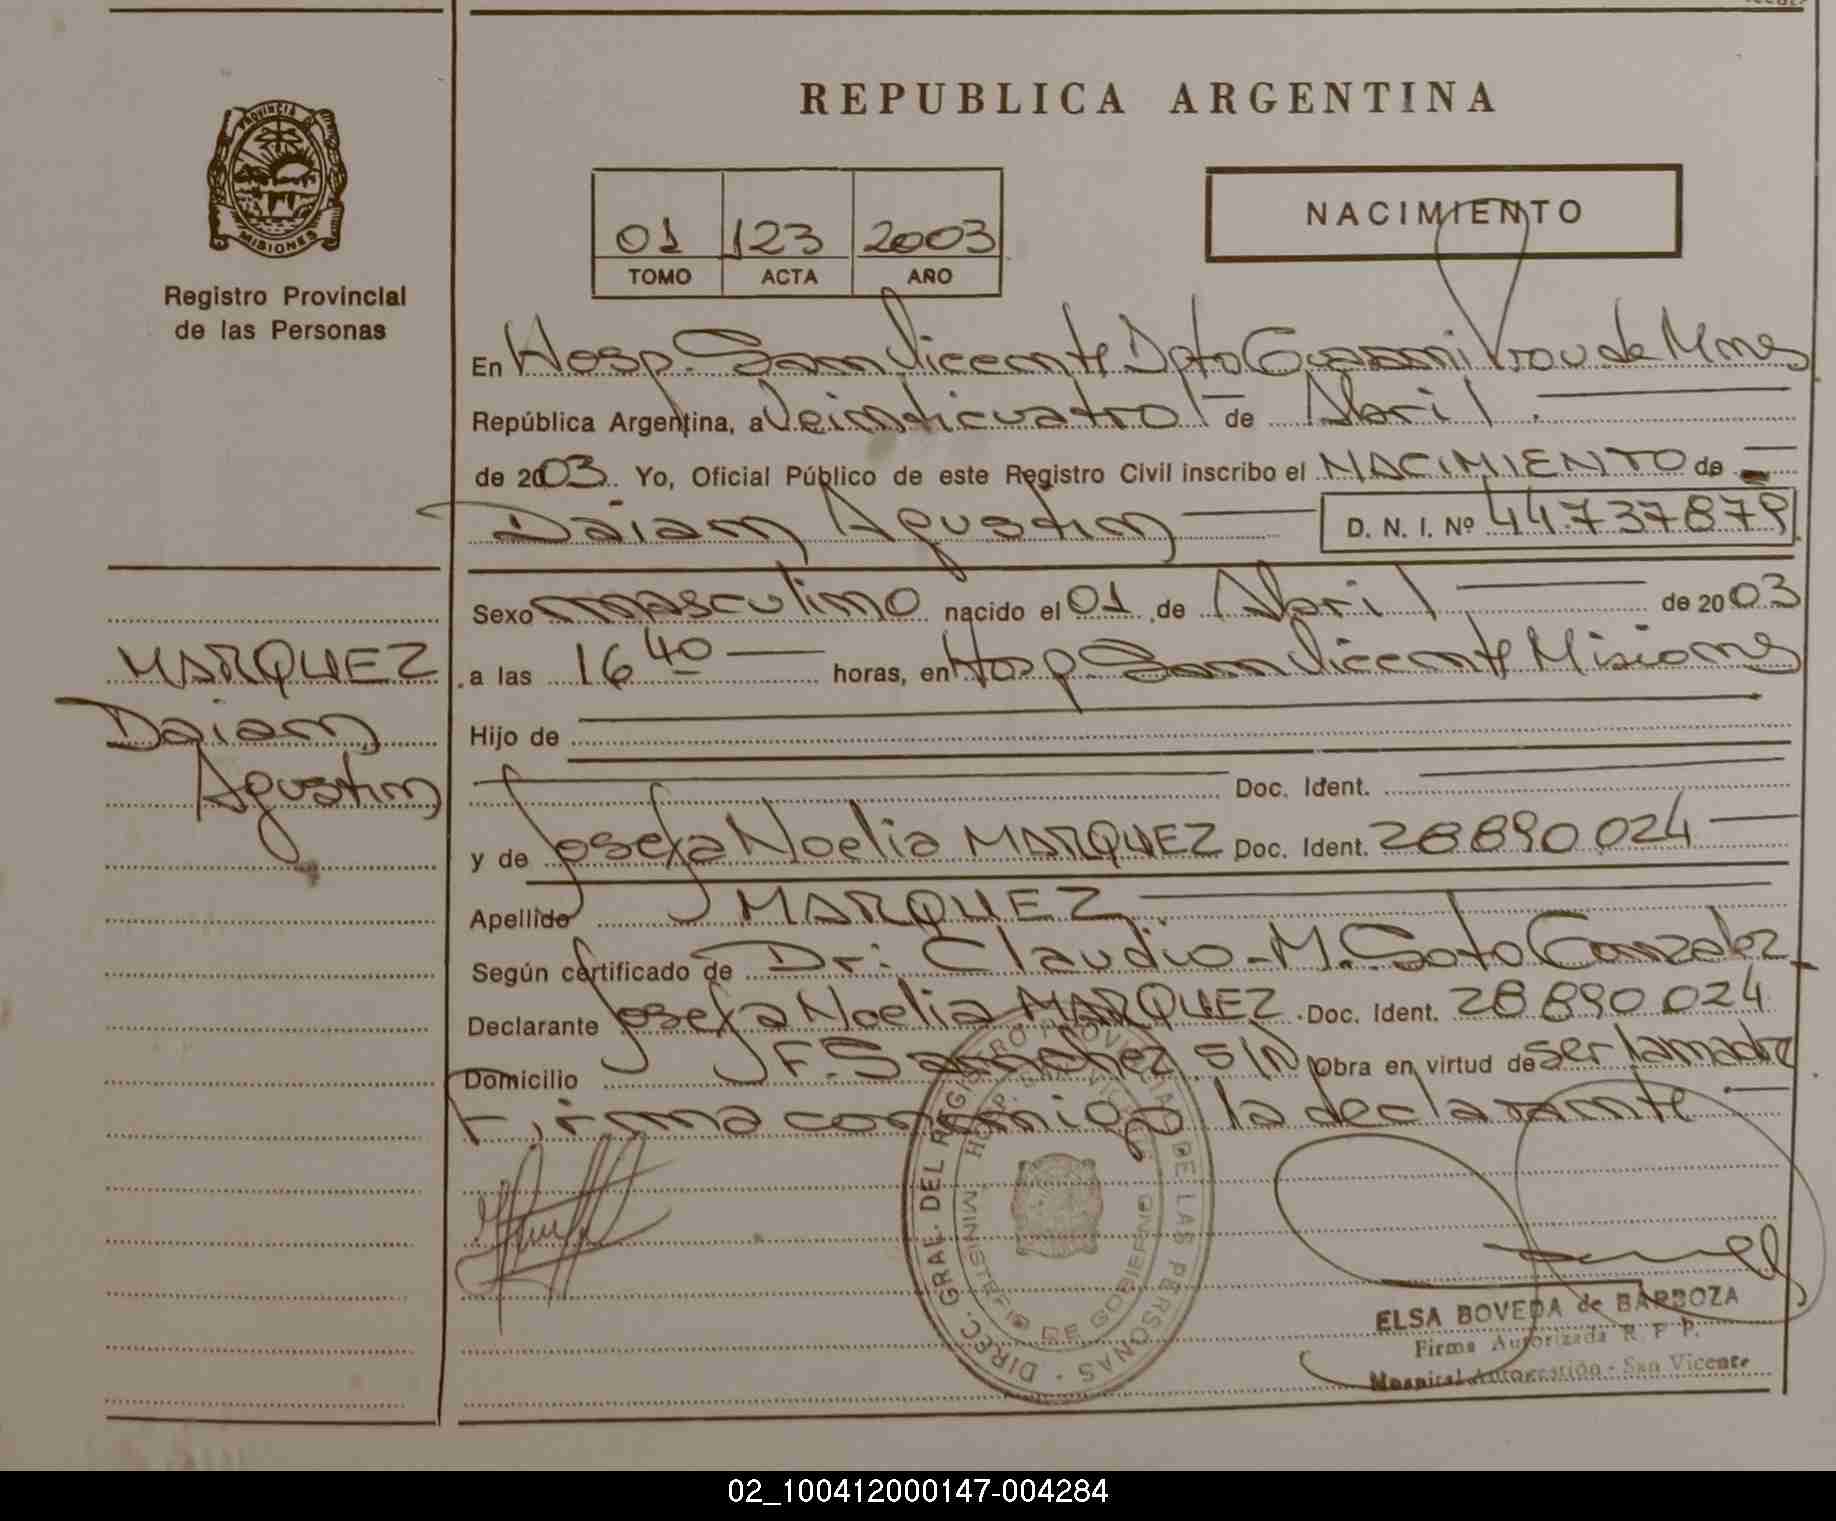 REPUBLICA ARGENTINA
PROVINCIA DE
MISIONES
Registro Provincial
de las Personas
01 123 2003
TOMO ACTA AÑO
NACIMIENTO
En Hosp. San Vicente Dpto Guarani Prov de Mnes
República Argentina, a Veinticuatro de Abril
de 2003. Yo, Oficial Público de este Registro Civil inscribo el NACIMIENTO de
Daian Agustin D. N. I. Nº 44.737.879
Sexo masculino nacido el 01 de Abril de 2003
a las 16 40 horas, en Hosp. San Vicente Misiones
Hijo de
Doc. Ident.
y de Josefa Noelia MARQUEZ Doc. Ident. 28.890.024
Apellido MARQUEZ
Según certificado de Dr: Claudio M. Soto Gonzalez
Declarante Josefa Noelia MARQUEZ Doc. Ident. 28.890.024
Domicilio F. Sanchez S/N Obra en virtud de ser la madre
Firma conmigo la declarante
MARQUEZ
Daian
Agustin
DIREC. GRAL. DEL REGISTRO PROVINCIAL DE LAS PERSONAS
MINISTERIO DE GOBIERNO
ELSA BOVEDA de BARBOZA
Firma Autorizada R. P. P.
Hospital Autogestión - San Vicente
02_100412000147-004284